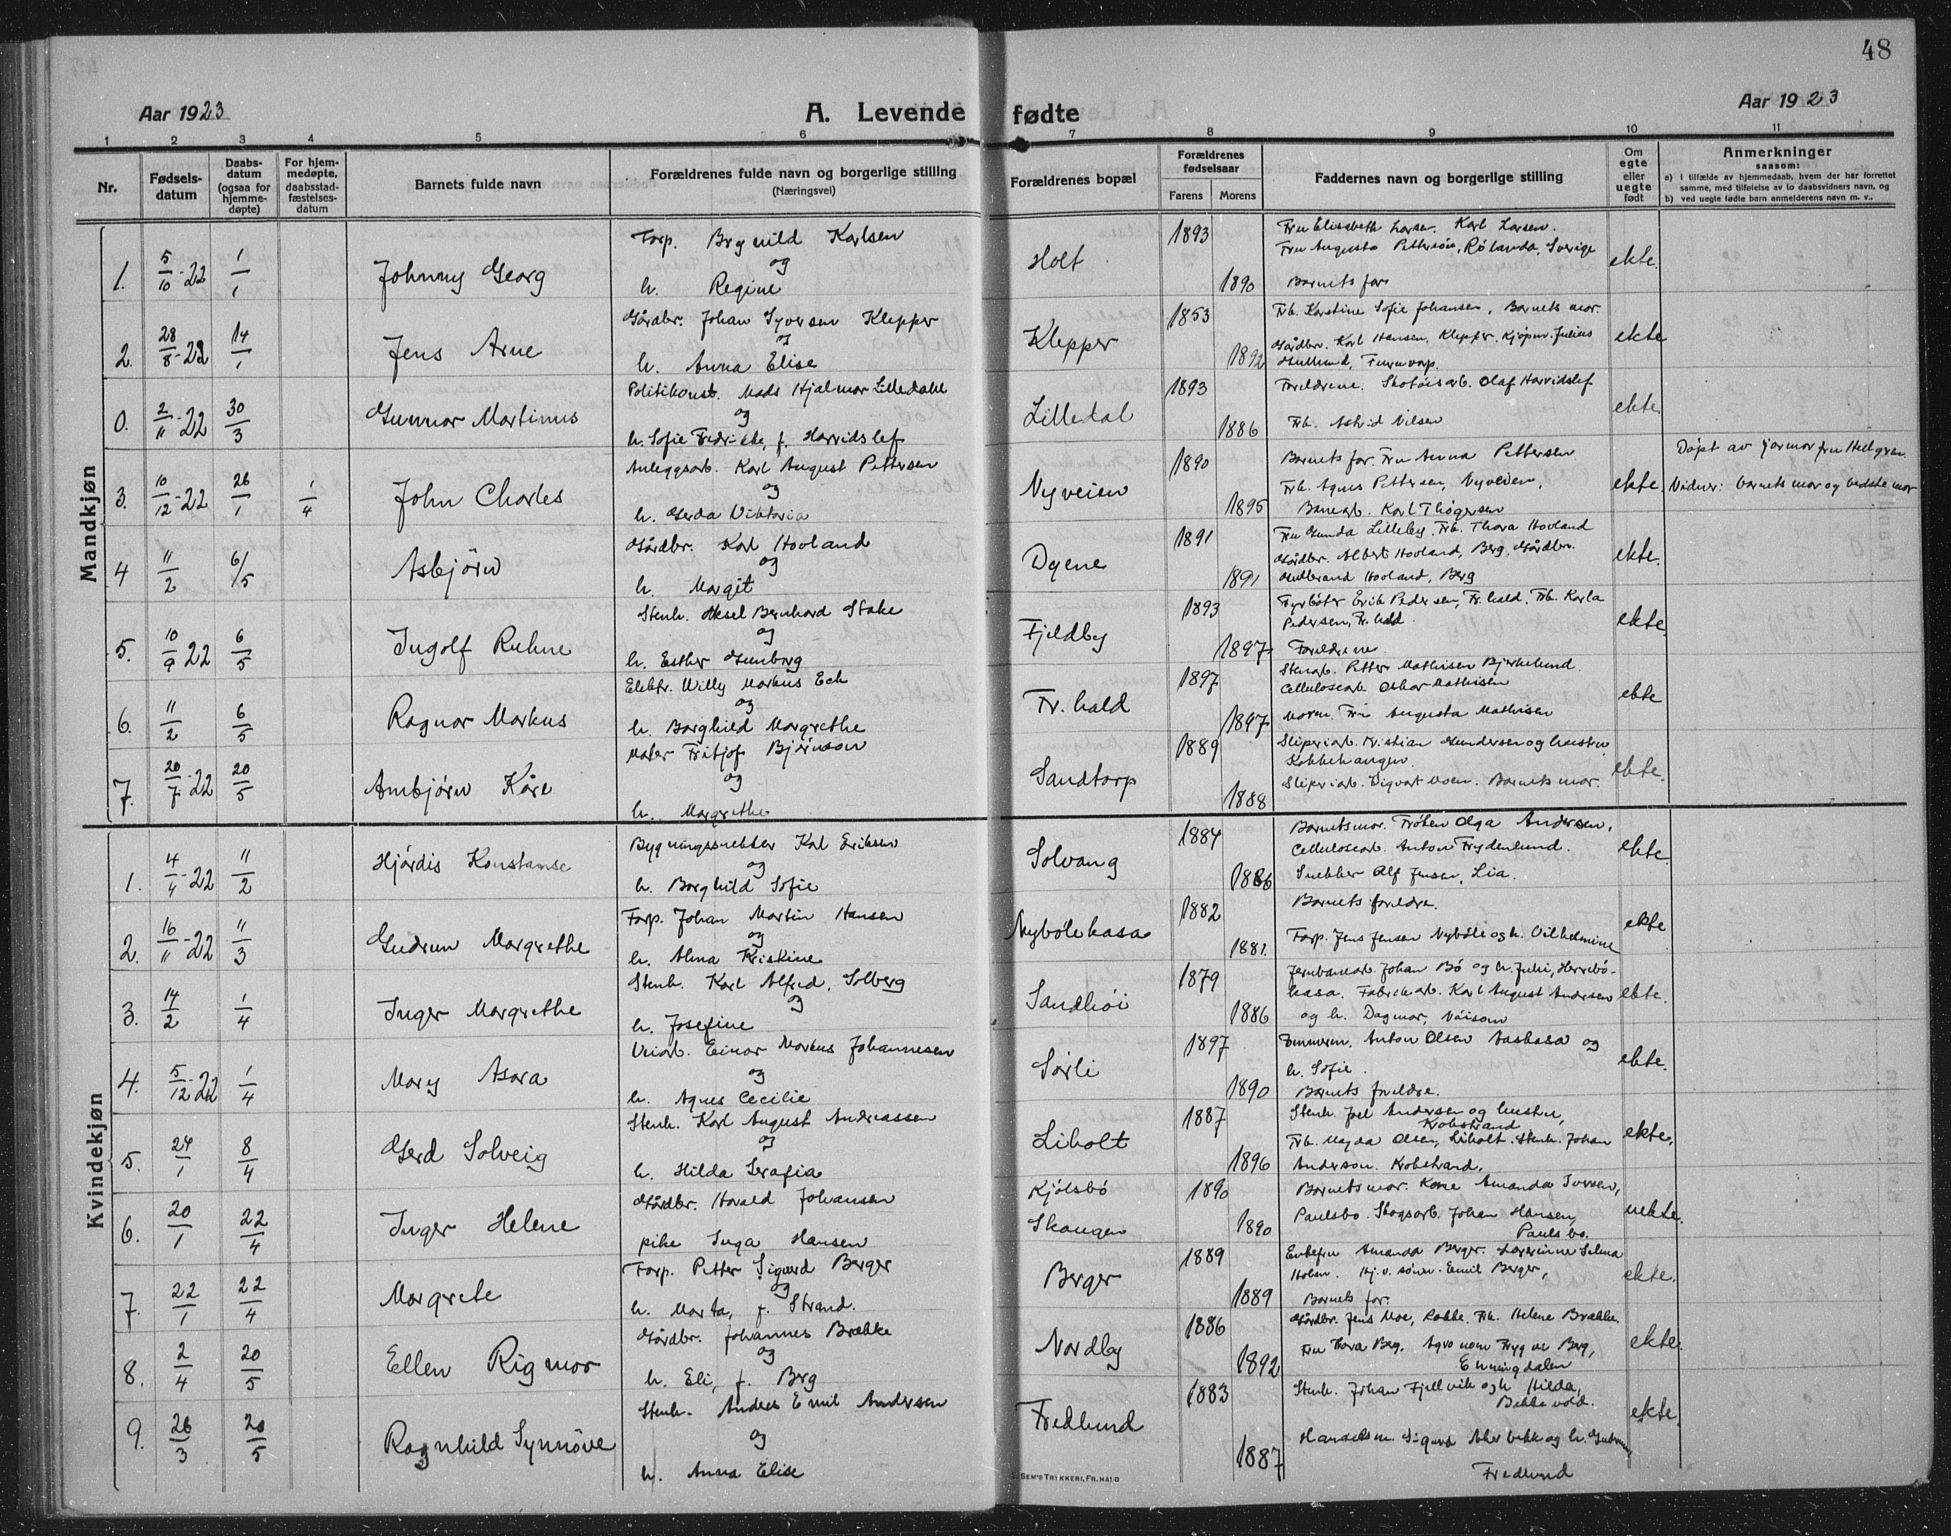 48
Aar 1923
A. Levende fødte
Aar 1923
1 2 3 4 5 6 7 8 9 10 11
Nr.
Fødsels-
datum
Daabs-
datum
(ogsaa for
hjemme-
døpte)
For hjem-
medøpte,
daabsstad-
fæstelses-
datum
Barnets fulde navn
Forældrenes fulde navn og borgerlige stilling
(Næringsvei)
Forældrenes bopæl
Forældrenes
fødselsaar
Farens Morens
Faddernes navn og borgerlige stilling
Om
egte
eller
uegte
født
Anmerkninger
saasom:
a) i tilfælde av hjemmedaab, hvem der har forrettet
samme, med tilføielse av to daabsvidners navn, og
b) ved uegte fødte barn anmelderens navn m. v..
Mandkjøn
1. 5/10-22 1/1 Johnny Georg
Forp. Brynild Karlsen
og
h. Regine
Holt 1893 1890
Fru Elisabeth Larse. Karl Larsen.
Fru Augusta Petterson, Rølanda, Sverige
Barnets far
ekte.
2. 28/8-22 14/1 Jens Arne
Gårdbr. Johan Syversen Klepper
og
h. Anna Elise
Klepper 1853 1892
Frk. Karstine Sofie Johansen, Barnets mor.
Gårdbr. Karl Hansen, Klepper. Kjøpm. Julius
ekte
0. 2/11-22 30/3 Gunnar Martinus
Politikonst. Mads Hjalmar Lilledahl
og
h. Sofie Fredrikke, f. Harvidslef
Lilledal 1893 1886
Foreldrene. Olaf Harvidslef
Frk. Astrid Nilsen
ekte.
3. 10/12-22 26/1 1/4 John Charles
Anleggsarb. Karl August Pettersen
og
h. Gerda Viktoria
Nyveien 1890 1895
Barnets far. Fru Anna Pettersen
Frk. Agnes Pettersen, Nyveien,
Banearb. Karl Thøgersen
ekte.
Døpt av jormor fru Hedgren.
Vidner: barnets mor og bedste mor
4 11/2 6/5 Asbjørn
Gårdbr. Karl Hovland
og
h. Margit
Dyene 1891 1891
Fru Gunda Lilleby. Frk. Thora Hovland
Gårdbr. Albert Hovland, Berg. Gårdbr.
Gudbrand Hovland, Berg
ekte.
5. 10/9 22 6/5 Ingolf Ruhne
Stenh. Aksel Bernhard Stake
og
h. Esther Gunborg
Fjeldby 1893 1897
Fyrbøter Erik Pedersen, Fr.hald. Frk. Karla
Pedersen, Fr.hald.
Foreldrene
ekte.
6. 11/2 6/5 Ragnar Markus
Elektr. Willy Markus Eek
og
h. Borghild Margrethe
Fr.hald 1897 1897
Stenarb. Petter Mathisen Bjerkelund.
Cellulosearb. Oskar Mathisen
Moren. Fru Augusta Mathisen
ekte
7. 20/7-22 20/5 Arnbjørn Kåre
Maler Fritjof Bjørnson
og
h. Margrethe
Sandtorp 1889 1888
Sliperiarb. Kristian Gundersen og hustru
Kobbehaugen.
Sliperiarb. Sigvart Moen. Barnets mor.
ekte.
Kvindekjøn
1. 4/4-22 11/2 Hjørdis Konstanse
Bygningssnekker Karl Eriksen
og
h. Borghild Sofie
Solvang 1884 1886
Barnets mor. Frøken Olga Andersen,
Cellulosearb. Anton Frydenlund.
Snekker Alf Jensen, Lia.
ekte.
2. 16/11-22 11/3 Gudrun Margrethe
Forp. Johan Martin Hansen
og
h. Alma Kristine
Nybølekasa 1882 1881.
Barnets foreldre.
Forp. Jens Jensen Nybøle og h. Vilhelmine
ekte
3. 14/2 1/4 Inger Margrethe
Stenh. Karl Alfred Solberg
og
h. Josefine
Sandhøi 1879 1886
Jernbanearb. Johan Bø og h. Juli, Herrebø-
kasa. Fabrikarb. Karl August Andersen
og h. Dagmar,
ekte.
4. 5/12-22 1/4 Mary Asora
Veiarb. Einar Markus Johannesen
og
h. Agnes Cecilie
Sørli 1897 1890
Tømmerm. Anton Olsen Aaskasa og
h. Sofie.
Barnets foreldre.
ekte.
5. 24/1 8/4 Gerd Solveig
Stenh. Karl August Andreassen
og
h. Hilda Serafia
Liholt 1887 1896
Stenh. Joel Andersen og hustru,
Krokstrand
Frk. Magda Olsen, Liholt. Stenh. Johan
Anderson. Krokstrand.
ekte.
6. 20/1 22/4 Inger Helene
Gårdbr. Harald Johansen
pike Inga Hansen
Kjølsbø
Skaugen 1890 1890
Barnets mor. Kone Amanda Iversen,
Paulsbo. Skogsarb. Johan Hansen,
Paulsbo.
uekte.
7. 22/1 22/4 Margrete
Forp. Petter Sigurd Berger
og
h. Marta, f. Strand.
Berger 1889 1889
Enkefru Amanda Berger. Lærerinne Selma
Holen. Hj.v. sønn. Emil Berger,
Barnets far.
ekte.
8. 2/4 20/5 Ellen Rigmor
Gårdbr. Johannes Brække
og
h. Eli, f. Berg
Nordby 1886 1892
Gårdbr. Jens Moe, Rakke. Frk. Helene Brække.
Fru Thora Berg. Agronom Trygve Berg,
Enningdalen
ekte.
9. 26/3 20/5 Ragnhild Synnöve
Stenh. Anders Emil Andersen
og
h. Anna Elise
Fredlund 1883 1887
Stenh. Johan Fjellvik og h Hilda,
Bakkevold.
Handelsm. Sigurd Akerbekk og h.
Fredlund
ekte.
SEM'S TRYKKERI, FR.HALD